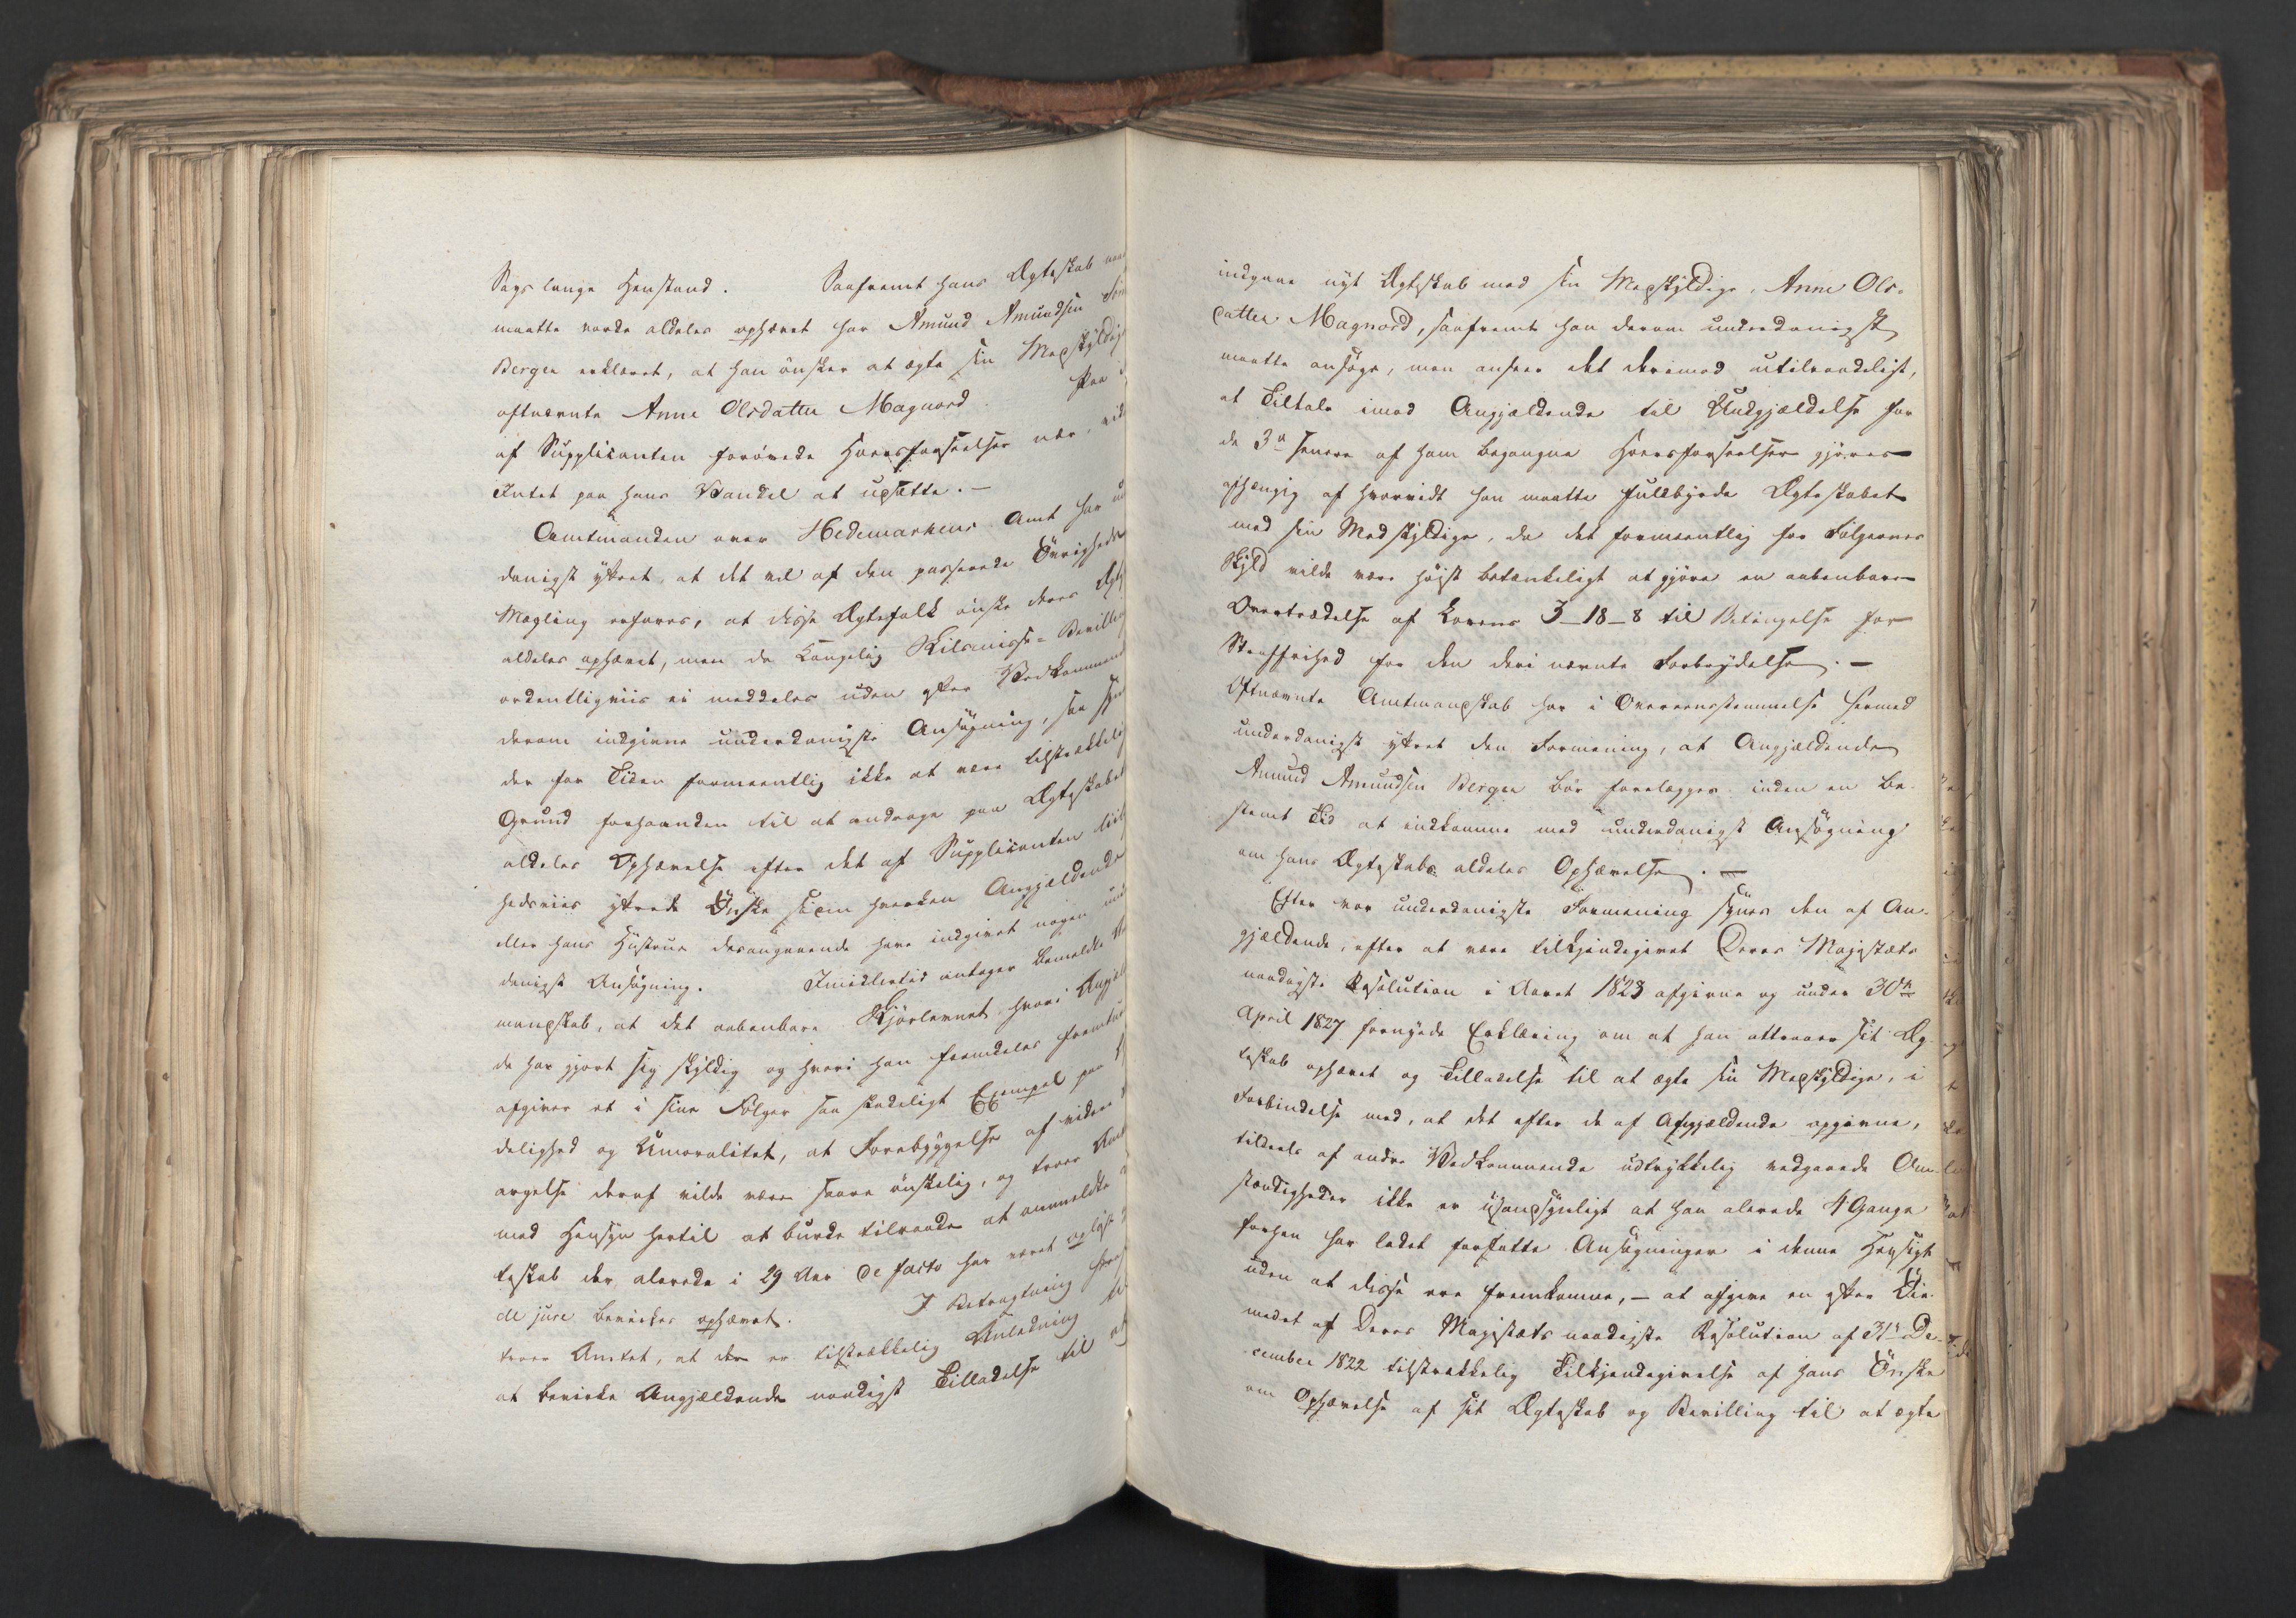 Sags lange Henstand. Saafremt hans Ægteskab
maatte vorde aldeles ophævet har Amund Amundsen
Berger erklæret, at han ønsker at ægte sin Medskyldige
oftnævnte Anne Olsdatter Magnord.
af Supplicanten forøvede Hoersforseelser nær,
Intet paa hans Vandel at udsætte.—
Amtmanden over Hedemarkens Amt har
danigst yttret, at det vel af den passerede Övrigheds
Mægling erfares, at disse Ægtefolk ønske deres
aldeles ophævet, men da Kongelig Skilsmisse-Bevilling
ordentligviis ei meddeles uden efter Vedkommende
derom indgivne underdanigste Ansøgning, saa
der for Tiden formeentlig ikke at være tilstrækkelig
Grund forhaanden til at andrage paa Ægteskabets
aldeles Ophævelse efter det af Supplicanten
hedsviis yttrede Ønske siden hverken Angjældende
eller hans Hustrue desangaaende have indgivet nogen
danigst Ansøgning. Imidlertid antager bemeldte
mandskab, at det aabenbare Skjørlevnet, hvori
de har gjort sig skyldig og hvori han fremdeles
afgiver et i sine Følger saa skadeligt Exempel paa
delighed og Umoralitet, at Forebyggelse af videre
argelse deraf vilde være saare ønskelig, og troer
med Hensyn hertil at burde tilraade at anmeldte
teskab der, alerede i 29 Aar de facto har været opløst
de jure bevirkes ophævet. I Betragtning
troer Amtet, at der er tilstrækkelig Anledning
at bevirke Angjældende naadigst Tilladelse til at
indgaae nyt Ægteskab med sin Medskyldige, Anne Ols-
datter Magnord, saafremt han derom underdanigst
maatte ansøge, men anseer det derimod utilraadeligt,
at Tiltale imod Angjældende til Undgjældelse for
de 3de senere af ham begangne Hoersforseelser gjøres
afhængig af hvorvidt han maatte fuldbyrde Ægteskabet
med sin Medskyldige, da det formeentlig for Følgernes
Skyld vilde være højst betænkeligt at gjøre en aabenbare
Overtrædelse af Lovens 3–18–8 til Betingelse for
Straffrihed for den deri nævnte Forbrydelse.—
Oftnævnte Amtmandskab har i Overeensstemmelse hermed
underdanigst yttret den Formening, at Angjældende
Amund Amundsen Berger bør forelægges inden en be-
stemt Tid at indkomme med underdanigst Ansøgning
om hans Ægteskabs aldeles Ophævelse.—
Efter vor underdanigste Formening synes den af An-
gjældende, efter at være tilkjendegivet Deres Majestæts
naadigste Resolution i Aaret 1823 afgivne og under 30te
April 1827 fornyede Erklæring om at han attraaer sit Æg-
teskab ophævet og Tilladelse til at ægte sin Medskyldige, i
Forbindelse med, at det efter de af Angjældende opgivne,
tildeels af andre Vedkommende udtrykkelig vedgaaede Om-
stændigheder ikke er usandsynligt at han alerede 4 Gange
forhen har ladet forfatte Ansøgninger i denne Hensigt
uden at disse ere fremkomne,— at afgive en efter Øie-
medet af Deres Majestæts naadigste Resolution af 31te De-
cember 1822 tilstrækkelig Tilkjendegivelse af hans Ønske
om Ophævelse af sit Ægteskab og Bevilling til at ægte